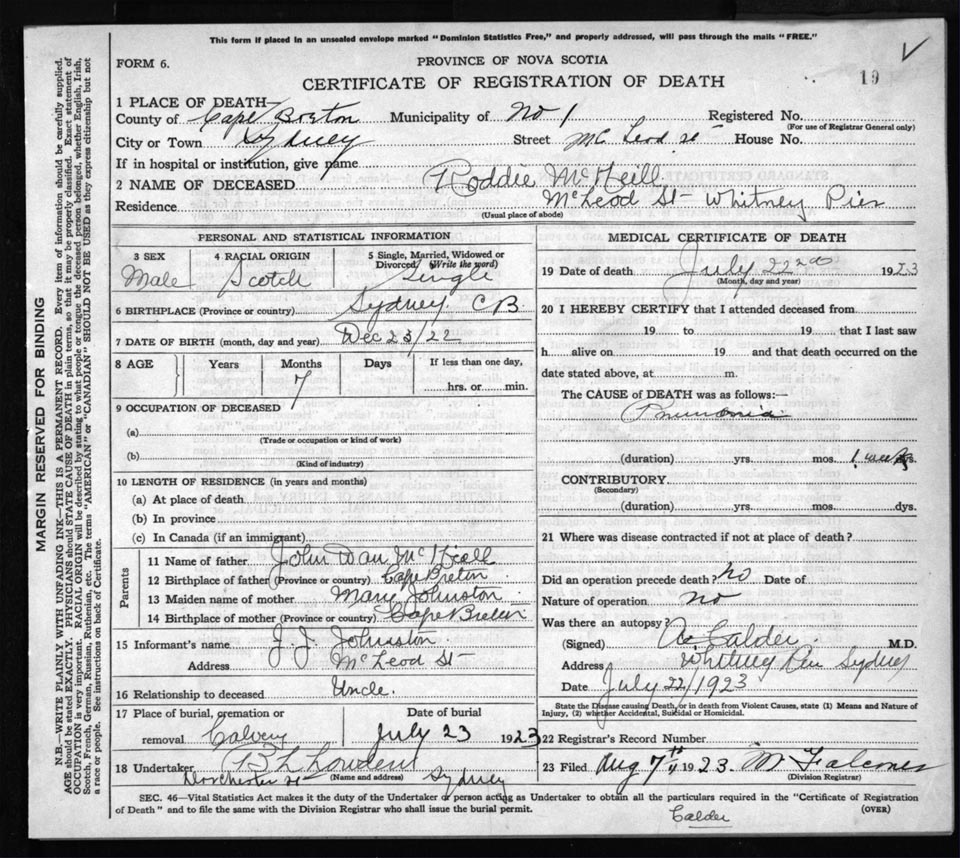 This form if placed in an unsealed envelope marked "Dominion Statistics Free," and properly addressed, will pass through the mails "FREE."
FORM 6.
PROVINCE OF NOVA SCOTIA
CERTIFICATE OF REGISTRATION OF DEATH
19
1 PLACE OF DEATH
County of Cape Breton Municipality of No 1 Registered No.
(For use of Registrar General only)
City or Town Sydney Street McLeod St House No.
If in hospital or institution, give name
2 NAME OF DECEASED Roddie McNeill
Residence McLeod St Whitney Pier
(Usual place of abode)
PERSONAL AND STATISTICAL INFORMATION
3 SEX 4 RACIAL ORIGIN 5 Single, Married, Widowed or Divorced (Write the word)
Male Scotch Single
6 BIRTHPLACE (Province or country) Sydney CB
7 DATE OF BIRTH (month, day and year) Dec 23/22
8 AGE Years Months Days If less than one day,
7 hrs. or min.
9 OCCUPATION OF DECEASED
(a)
(Trade or occupation or kind of work)
(b)
(Kind of industry)
10 LENGTH OF RESIDENCE (in years and months)
(a) At place of death
(b) In province
(c) In Canada (if an immigrant)
Parents
11 Name of father John Dan McNeill
12 Birthplace of father (Province or country) Cape Breton
13 Maiden name of mother Mary Johnston
14 Birthplace of mother (Province or country) Cape Breton
15 Informant's name J. J. Johnston
Address McLeod St
16 Relationship to deceased Uncle.
17 Place of burial, cremation or Date of burial
removal Calvery July 23 1923
18 Undertaker
(Name and address)
Dorchester St Sydney
MEDICAL CERTIFICATE OF DEATH
19 Date of death July 22nd 1923
(Month, day and year)
20 I HEREBY CERTIFY that I attended deceased from
19 to 19 that I last saw
h alive on 19 and that death occurred on the
date stated above, at m.
The CAUSE of DEATH was as follows:—
Pneumonia
(duration) yrs. mos. 1 week dys.
CONTRIBUTORY
(Secondary)
(duration) yrs. mos. dys.
21 Where was disease contracted if not at place of death?
Did an operation precede death? No Date of
Nature of operation no
Was there an autopsy?
(Signed) A. Calder M.D.
Address Whitney Pier Sydney
Date July 22/1923
State the Disease causing Death, or in death from Violent Causes, state (1) Means and Nature of
Injury, (2) whether Accidental, Suicidal or Homicidal.
22 Registrar's Record Number
23 Filed Aug 7th 1923. M Falconer
(Division Registrar)
SEC. 46—Vital Statistics Act makes it the duty of the Undertaker or person acting as Undertaker to obtain all the particulars required in the "Certificate of Registration
of Death" and to file the same with the Division Registrar who shall issue the burial permit. (OVER)
Calder
MARGIN RESERVED FOR BINDING
N.B.—WRITE PLAINLY WITH UNFADING INK—THIS IS A PERMANENT RECORD. Every item of information should be carefully supplied.
AGE should be stated EXACTLY. PHYSICIANS should STATE CAUSE OF DEATH in plain terms, so that it may be properly classified. Exact statement of
OCCUPATION is very important. RACIAL ORIGIN will be described by stating to what people or tongue the deceased person belonged, whether English, Irish,
Scotch, French, German, Russian, Ruthenian, etc. The terms "AMERICAN" or "CANADIAN" SHOULD NOT BE USED as they express citizenship but not
a race or people. See instructions on back of Certificate.